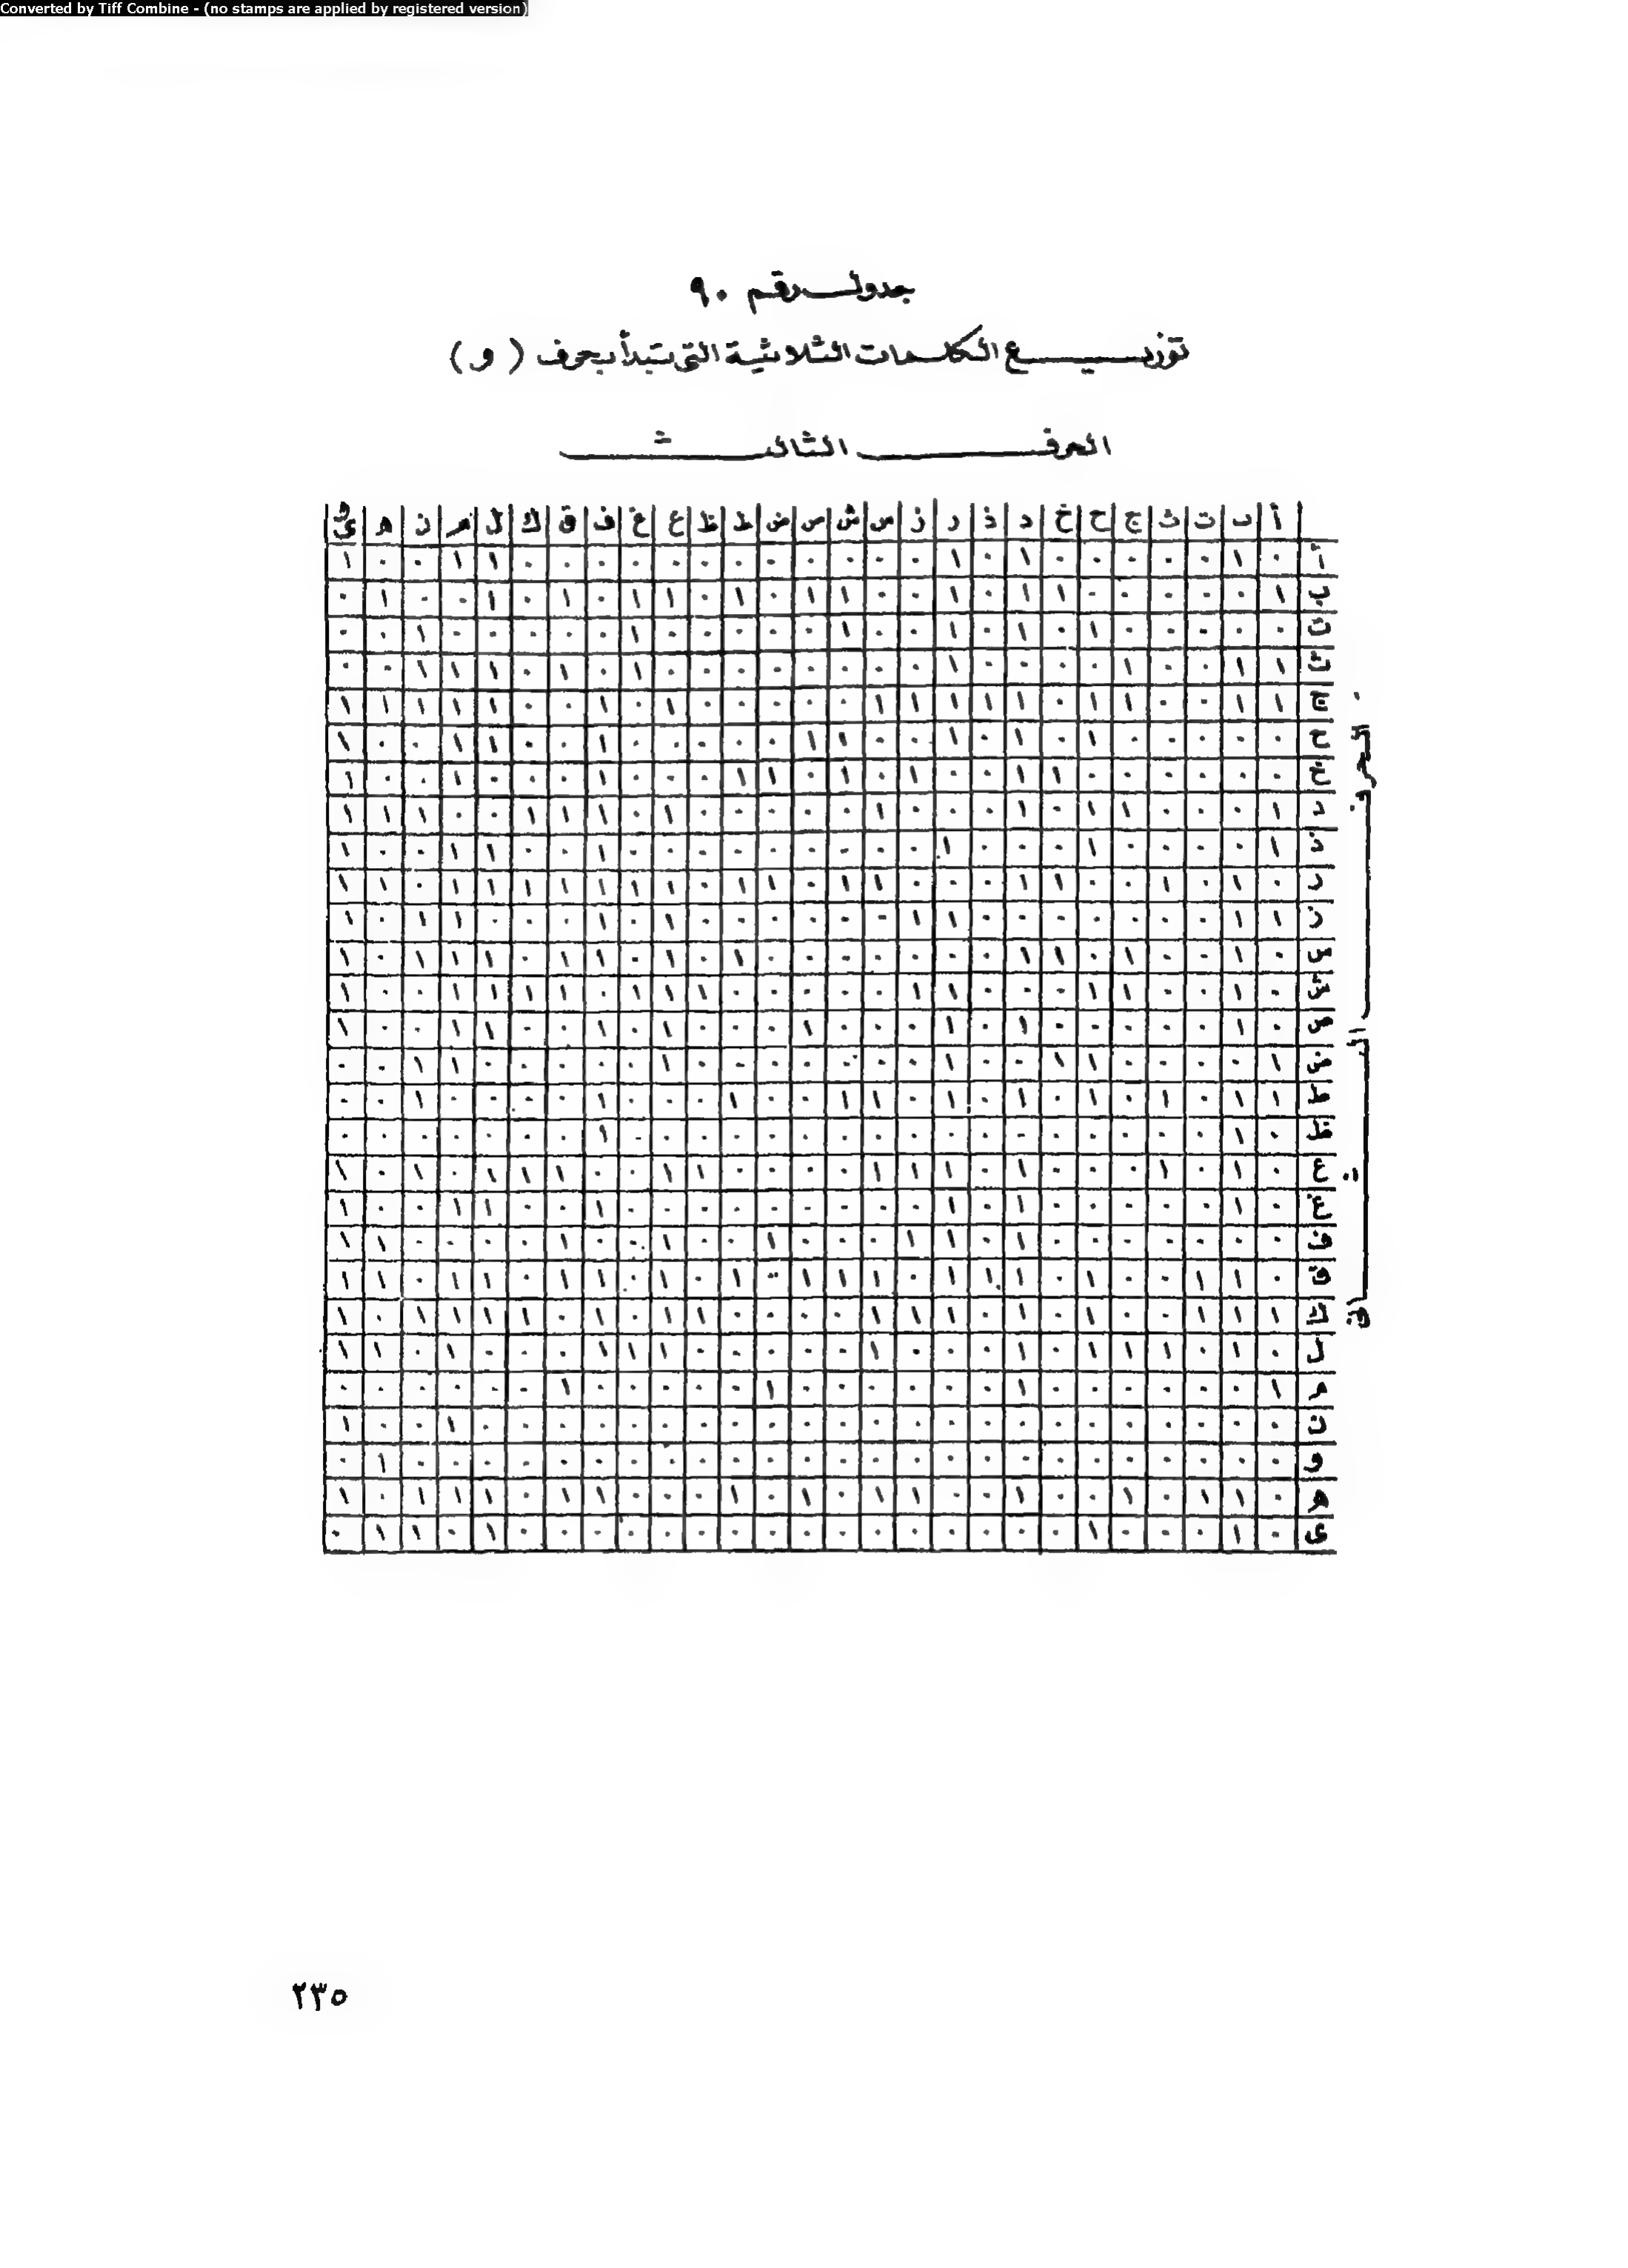 Converted by Tiff Combine - (no stamps are applied by registered version)
جدول رقم ٩٠
توزيع الكلمات الثلاثية التى تبدأ بحرف ( و )
الحرف الثالث
أ ب ت ث ج ح خ د ذ ر ز س ش ص ض ط ظ ع غ ف ق ك ل م ن ه ى
الحرف الثانى
أ ٠ ١ ٠ ٠ ٠ ٠ ٠ ١ ٠ ١ ٠ ٠ ٠ ٠ ٠ ٠ ٠ ٠ ٠ ٠ ٠ ٠ ١ ١ ٠ ٠ ١
ب ١ ٠ ٠ ٠ ٠ ٠ ١ ١ ٠ ١ ٠ ٠ ١ ١ ٠ ١ ٠ ١ ١ ٠ ١ ٠ ١ ٠ ٠ ١ ٠
ت ٠ ٠ ٠ ٠ ٠ ١ ٠ ١ ٠ ١ ٠ ٠ ١ ٠ ٠ ٠ ٠ ٠ ١ ٠ ٠ ٠ ٠ ٠ ١ ٠ ٠
ث ١ ١ ٠ ٠ ١ ٠ ٠ ٠ ٠ ١ ٠ ٠ ٠ ٠ ٠ ٠ ٠ ٠ ١ ٠ ١ ٠ ١ ١ ١ ٠ ٠
ج ١ ١ ٠ ٠ ١ ١ ٠ ١ ١ ١ ١ ١ ٠ ٠ ٠ ٠ ٠ ١ ٠ ١ ٠ ٠ ١ ١ ١ ١ ١
ح ٠ ٠ ٠ ٠ ٠ ١ ٠ ١ ٠ ١ ٠ ٠ ١ ١ ٠ ٠ ٠ ٠ ٠ ١ ٠ ٠ ١ ١ ٠ ٠ ١
خ ٠ ٠ ٠ ٠ ٠ ٠ ١ ١ ٠ ٠ ١ ٠ ١ ٠ ١ ١ ٠ ٠ ٠ ١ ٠ ٠ ٠ ١ ٠ ٠ ١
د ١ ٠ ٠ ٠ ١ ١ ٠ ١ ٠ ٠ ٠ ١ ٠ ٠ ٠ ٠ ٠ ١ ٠ ١ ١ ١ ٠ ٠ ١ ١ ١
ذ ١ ٠ ٠ ٠ ٠ ١ ٠ ٠ ٠ ١ ٠ ٠ ٠ ٠ ٠ ٠ ٠ ٠ ٠ ١ ٠ ٠ ١ ١ ٠ ٠ ١
ر ٠ ١ ٠ ١ ٠ ٠ ١ ١ ٠ ٠ ٠ ١ ١ ٠ ١ ١ ٠ ١ ١ ١ ١ ١ ١ ١ ٠ ١ ١
ز ١ ١ ٠ ٠ ٠ ٠ ٠ ٠ ٠ ١ ١ ٠ ٠ ٠ ٠ ٠ ٠ ١ ٠ ١ ٠ ٠ ٠ ١ ١ ٠ ١
س ٠ ١ ٠ ٠ ١ ٠ ١ ١ ٠ ٠ ٠ ٠ ٠ ٠ ٠ ١ ٠ ١ ٠ ١ ١ ٠ ١ ١ ١ ٠ ١
ش ٠ ١ ٠ ٠ ١ ١ ٠ ٠ ٠ ١ ١ ٠ ٠ ٠ ٠ ٠ ١ ١ ١ ٠ ١ ١ ١ ١ ٠ ٠ ١
ص ٠ ١ ٠ ٠ ٠ ٠ ٠ ١ ٠ ١ ٠ ٠ ٠ ١ ٠ ٠ ٠ ١ ٠ ١ ٠ ٠ ١ ١ ٠ ٠ ١
ض ١ ٠ ٠ ٠ ٠ ١ ١ ٠ ٠ ١ ٠ ٠ ٠ ٠ ٠ ٠ ٠ ١ ٠ ٠ ٠ ٠ ٠ ١ ١ ٠ ٠
ط ١ ١ ٠ ١ ٠ ١ ٠ ١ ٠ ١ ٠ ١ ١ ٠ ٠ ١ ٠ ٠ ٠ ١ ٠ ٠ ٠ ٠ ١ ٠ ٠
ظ ٠ ١ ٠ ٠ ٠ ٠ ٠ ٠ ٠ ٠ ٠ ٠ ٠ ٠ ٠ ٠ ٠ ٠ ٠ ١ ٠ ٠ ٠ ٠ ٠ ٠ ٠
ع ٠ ١ ٠ ١ ٠ ٠ ٠ ١ ٠ ١ ١ ١ ٠ ٠ ٠ ٠ ١ ١ ٠ ٠ ١ ١ ١ ٠ ١ ٠ ١
غ ٠ ١ ٠ ٠ ٠ ٠ ٠ ١ ٠ ١ ٠ ٠ ٠ ٠ ٠ ٠ ٠ ٠ ٠ ١ ٠ ٠ ١ ١ ٠ ٠ ١
ف ٠ ٠ ٠ ٠ ٠ ٠ ٠ ١ ٠ ١ ١ ٠ ٠ ٠ ١ ٠ ٠ ١ ٠ ٠ ١ ٠ ٠ ٠ ٠ ١ ١
ق ٠ ١ ١ ٠ ٠ ١ ٠ ١ ١ ١ ٠ ١ ١ ١ ٠ ١ ٠ ١ ٠ ١ ١ ٠ ١ ١ ٠ ١ ١
ك ١ ١ ١ ٠ ٠ ١ ٠ ١ ٠ ١ ١ ١ ٠ ٠ ٠ ٠ ١ ١ ٠ ١ ٠ ١ ١ ١ ١ ٠ ١
ل ٠ ١ ٠ ١ ١ ١ ٠ ١ ٠ ٠ ٠ ١ ٠ ٠ ٠ ٠ ٠ ١ ١ ١ ٠ ٠ ٠ ١ ٠ ١ ١
م ١ ٠ ٠ ٠ ٠ ٠ ٠ ١ ٠ ٠ ٠ ٠ ٠ ٠ ١ ٠ ٠ ٠ ٠ ٠ ١ ٠ ٠ ٠ ٠ ٠ ٠
ن ٠ ٠ ٠ ٠ ٠ ٠ ٠ ٠ ٠ ٠ ٠ ٠ ٠ ٠ ٠ ٠ ٠ ٠ ٠ ٠ ٠ ٠ ٠ ١ ٠ ٠ ١
و ٠ ٠ ٠ ٠ ٠ ٠ ٠ ٠ ٠ ٠ ٠ ٠ ٠ ٠ ٠ ٠ ٠ ٠ ٠ ٠ ٠ ٠ ٠ ٠ ٠ ١ ٠
ه ٠ ١ ١ ٠ ١ ٠ ٠ ١ ٠ ٠ ١ ١ ٠ ١ ٠ ١ ٠ ٠ ٠ ١ ١ ٠ ١ ١ ١ ٠ ١
ى ٠ ١ ٠ ٠ ٠ ١ ٠ ٠ ٠ ٠ ٠ ٠ ٠ ٠ ٠ ٠ ٠ ٠ ٠ ٠ ٠ ٠ ١ ٠ ١ ١ ٠
٢٣٥